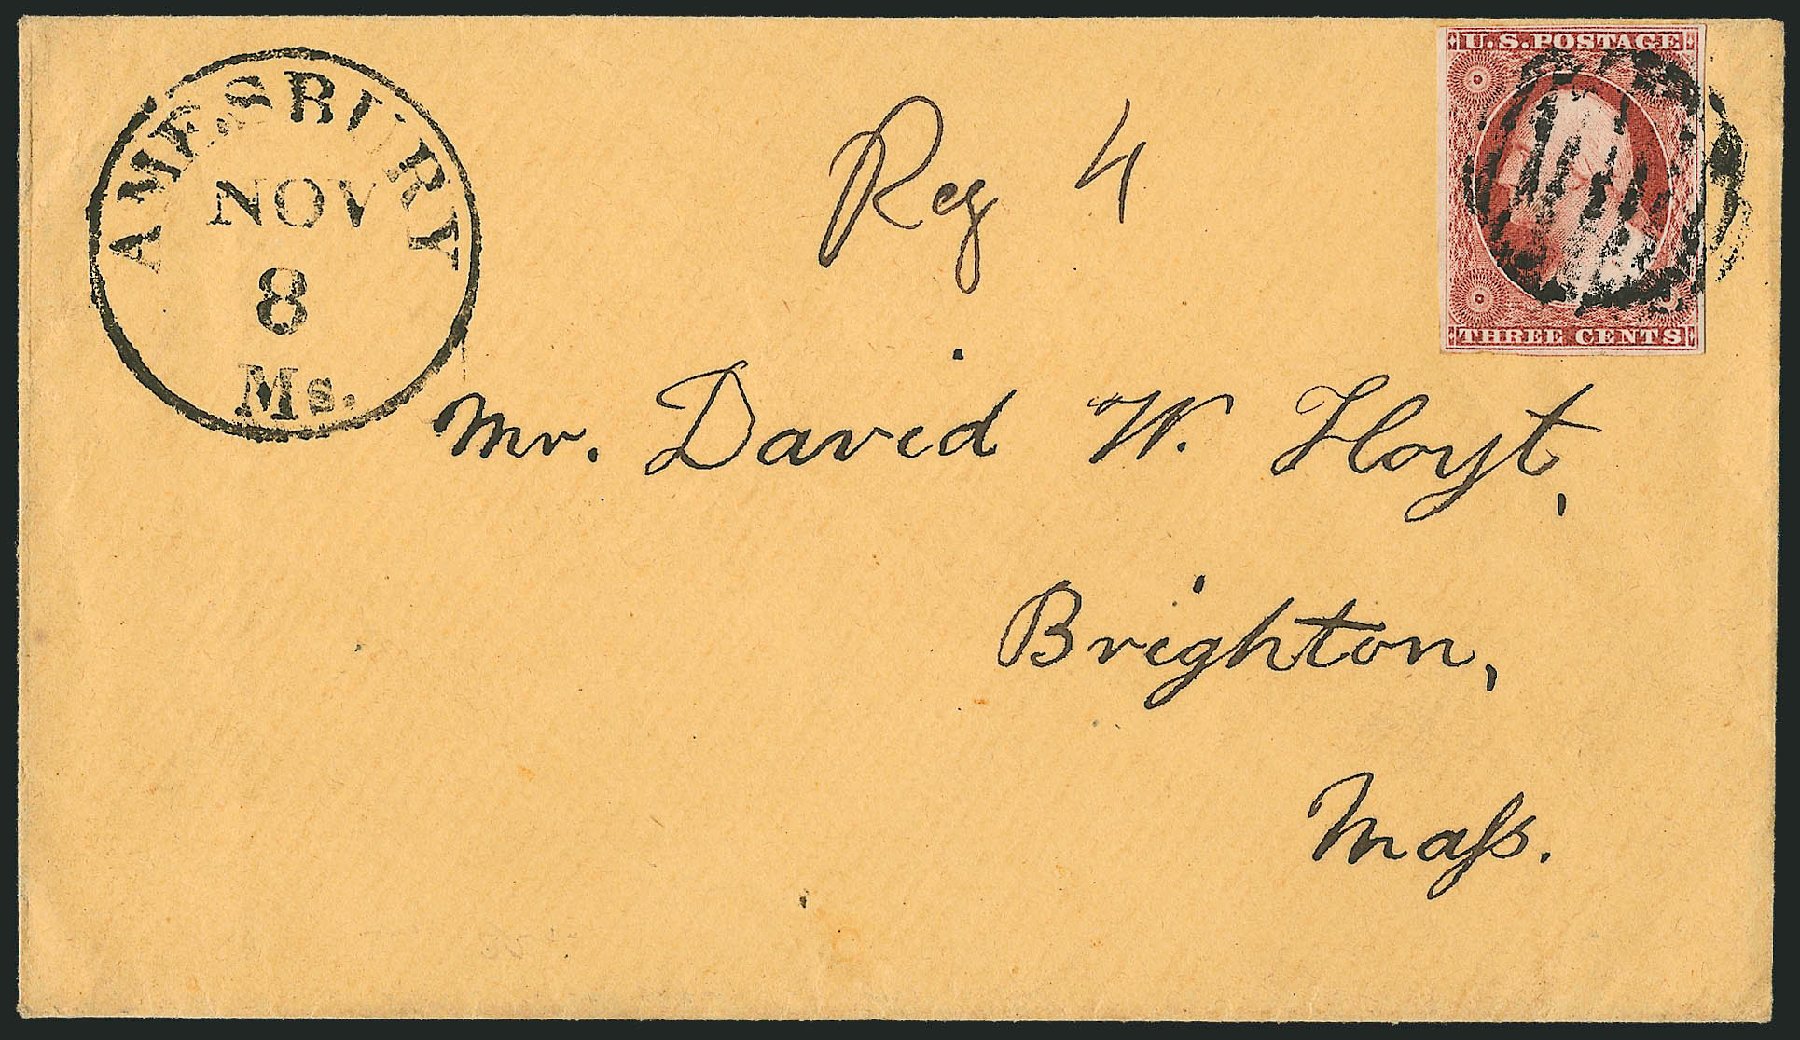 AMESBURY
NOV
8
Ms.
Reg 4
U.S. POSTAGE
THREE CENTS
Mr. David W. Hoyt,
Brighton,
Maſs.